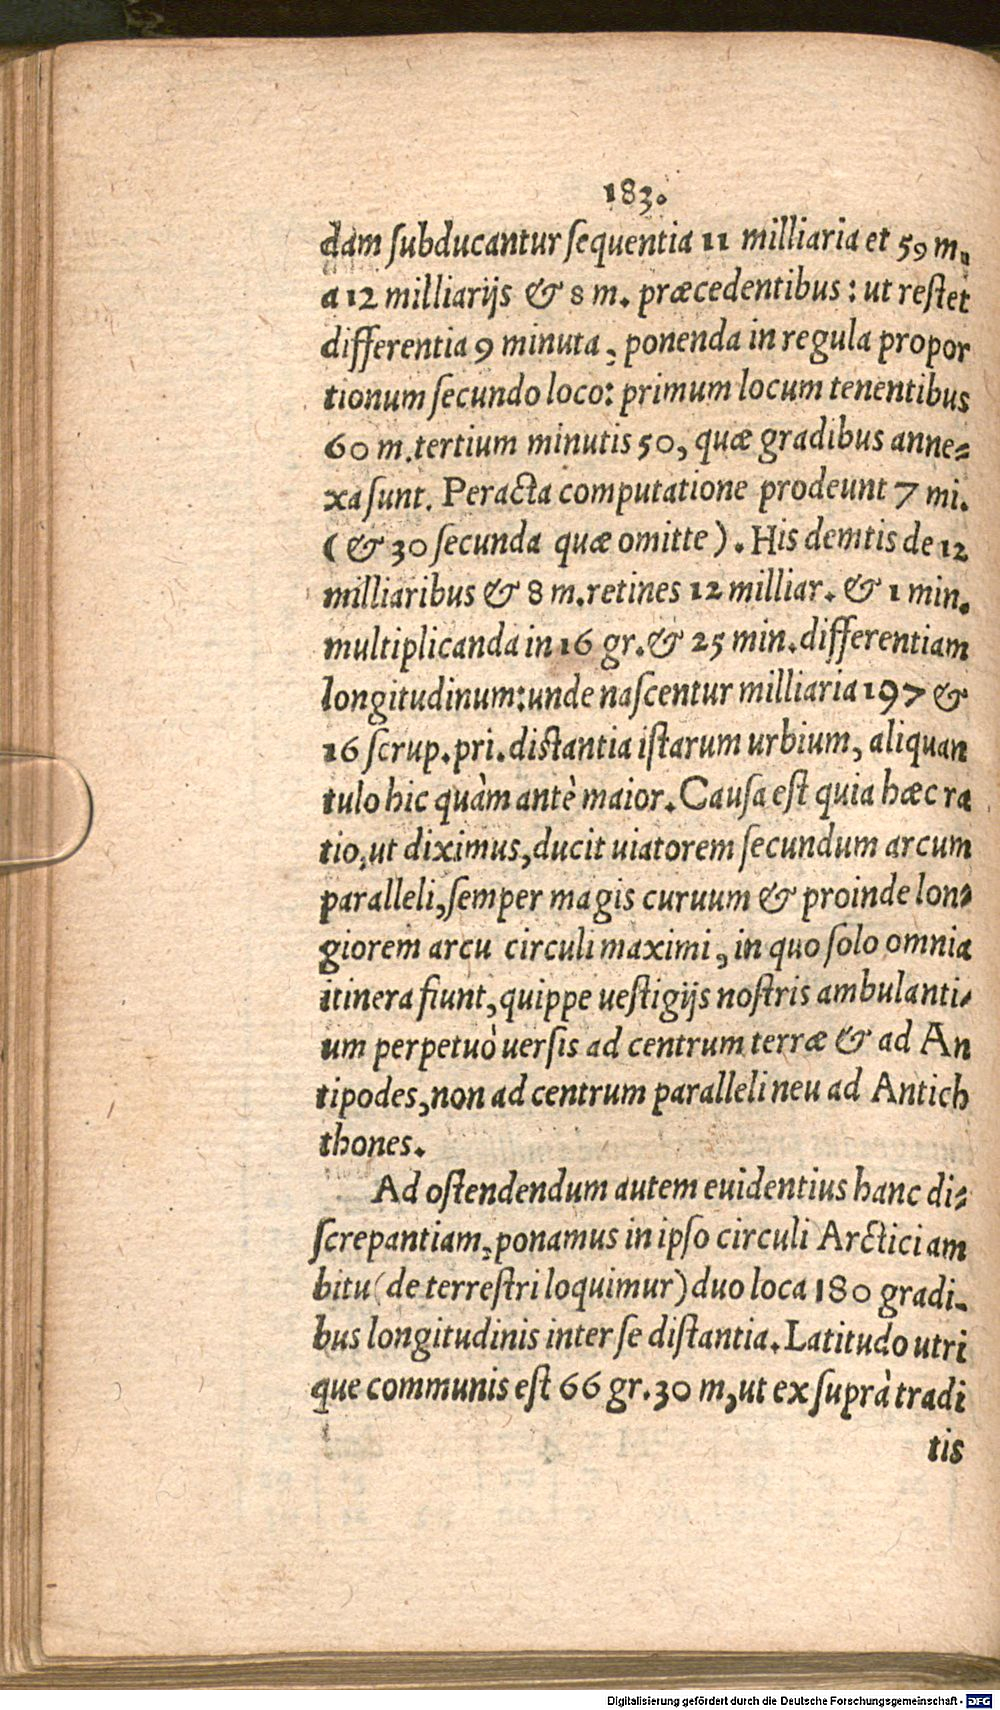 183.
dam ſubducantur ſequentia 11 milliaria et 59 m.
a 12 milliarijs & 8 m. præcedentibus: ut reſtet
differentia 9 minuta, ponenda in regula propor
tionum ſecundo loco: primum locum tenentibus
60 m. tertium minutis 50, quæ gradibus anne⸗
xa ſunt. Peracta computatione prodeunt 7 mi.
(& 30 ſecunda quæ omitte). His demtis de 12
milliaribus & 8 m. retines 12 milliar. & 1 min.
multiplicanda in 16 gr. & 25 min. differentiam
longitudinum: unde naſcentur milliaria 197 &
16 ſcrup. pri. diſtantia iſtarum urbium, aliquan
tulo hic quàm antè maior. Cauſa eſt quia hæc ra
tio, ut diximus, ducit uiatorem ſecundum arcum
paralleli, ſemper magis curuum & proinde lon⸗
giorem arcu circuli maximi, in quo ſolo omnia
itinera fiunt, quippe ueſtigijs noſtris ambulanti⸗
um perpetuò uerſis ad centrum terræ & ad An
tipodes, non ad centrum paralleli neu ad Antich
thones.
Ad oſtendendum autem euidentius hanc di⸗
ſcrepantiam, ponamus in ipſo circuli Arctici am
bitu (de terreſtri loquimur) duo loca 180 gradi⸗
bus longitudinis inter ſe diſtantia. Latitudo utri
que communis eſt 66 gr. 30 m, ut ex ſuprà tradi
tis
Digitalisierung gefördert durch die Deutsche Forschungsgemeinschaft - DFG